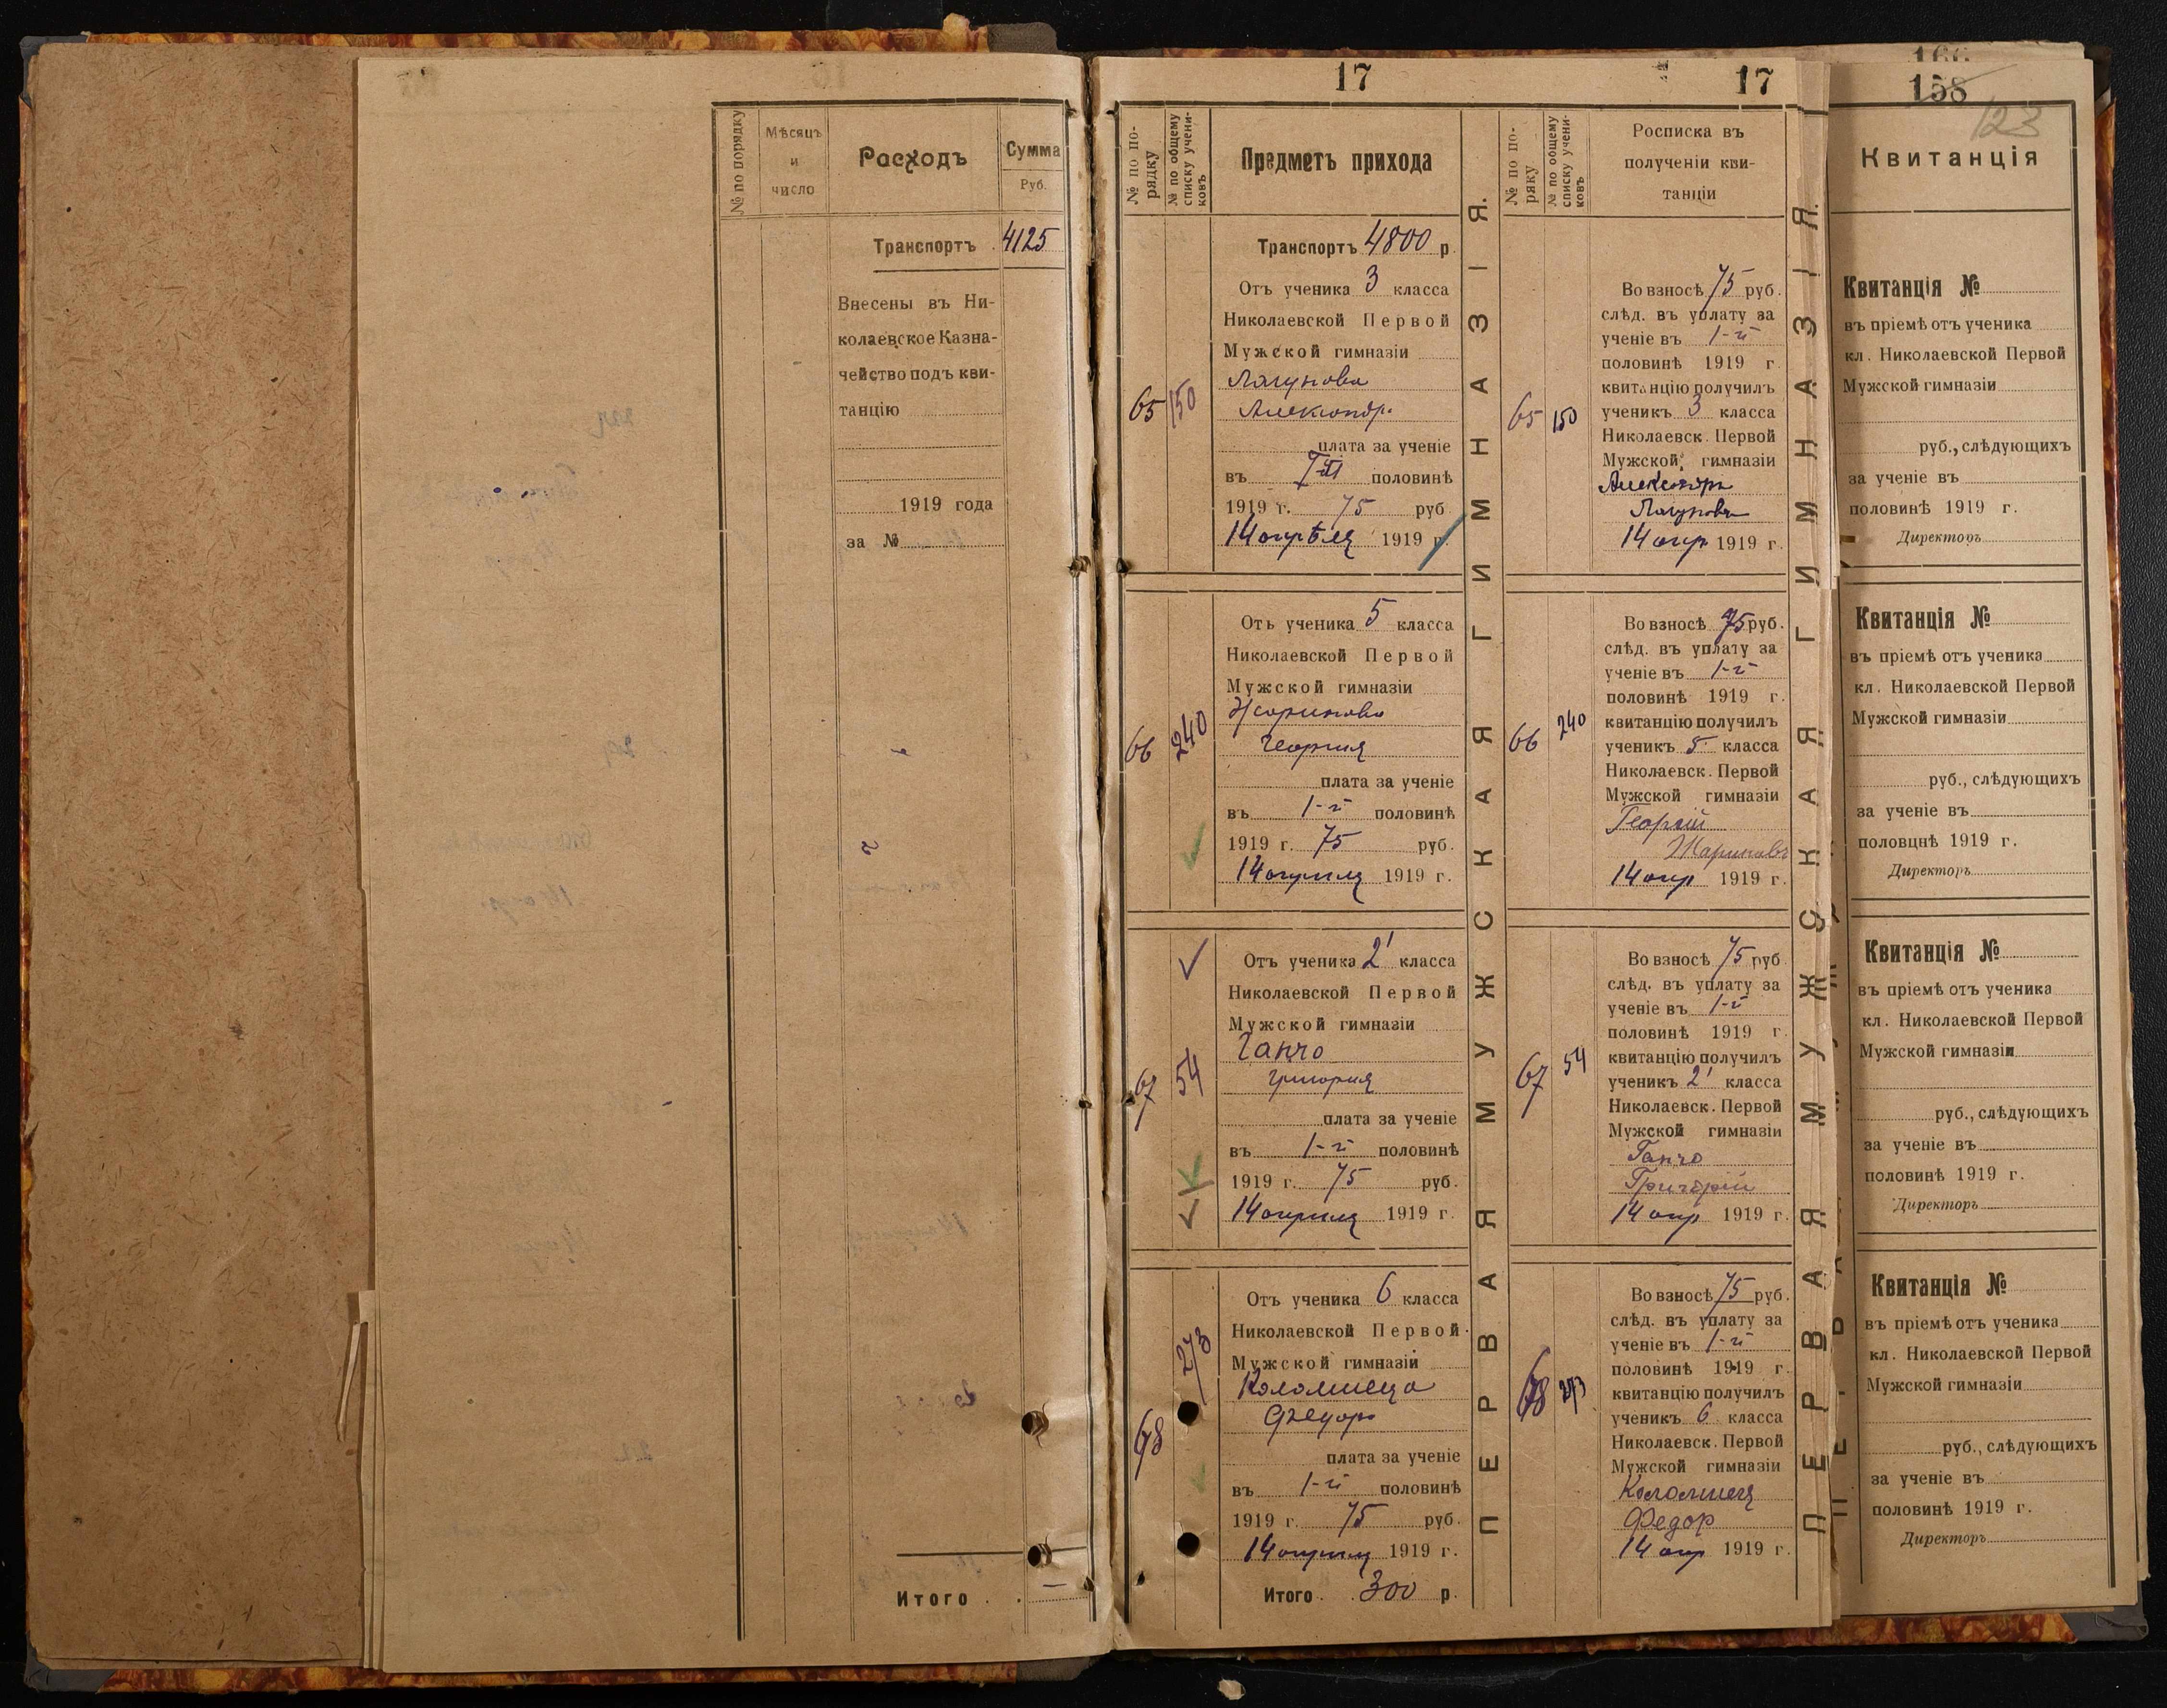 № по порядку
Мѣсяцъ
и
число
Расходъ
Сумма
Руб.
Транспортъ 4125
Внесены въ Ни-
колаевское Казна-
чейство подъ кви-
танцію
1919 года
за №
Итого . . —
17
№ по по-
рядку
№ по общему
списку учени-
ковъ
Предметъ прихода
Транспортъ 4800 р
65
150
Отъ ученика 3 класса
Николаевской Первой
Мужской гимназіи
Лагунова
Александр.
плата за ученіе
въ половинѣ
1919 г. 75 руб
14 апрѣля 1919 г.
66
240
Отъ ученика 5 класса
Николаевской Первой
Мужской гимназіи
Жаринова
Георгия
плата за ученіе
въ 1-й половинѣ
1919 г. 75 руб.
14 априля 1919 г.
67
54
Отъ ученика 2' класса
Николаевской Первой
Мужской гимназіи
Ганчо
Григория
плата за ученіе
въ 1-й половинѣ
1919 г. 75 руб.
14 априля 1919 г.
68
273
Отъ ученика 6 класса
Николаевской Первой
Мужской гимназіи
Коломиеца
Федора
плата за ученіе
въ 1-й половинѣ
1919 г. 75 руб.
14 априля 1919 г.
Итого . . 300 р.
ПЕРВАЯ МУЖСКАЯ ГИМНАЗІЯ.
17
№ по по-
ряку
№ по общему
списку учени-
ковъ
Росписка въ
полученіи кви-
танціи
65
150
Во взносѣ 75 руб.
слѣд. въ уплату за
ученіе въ 1-й
половинѣ 1919 г
квитанцію получилъ
ученикъ 3 класса
Николаевск. Первой
Мужской гимназіи
Александръ
Лагуновъ
14 апр 1919 г.
66
240
Во взносѣ 75 руб.
слѣд. въ уплату за
ученіе въ 1-й
половинѣ 1919 г.
квитанцію получилъ
ученикъ 5 класса
Николаевск. Первой
Мужской гимназіи
Георгій
Жариновъ
14 апр 1919 г.
67
54
Во взносѣ 75 руб
слѣд. въ уплату за
ученіе въ 1-й
половинѣ 1919 г
квитанцію получилъ
ученикъ 2' класса
Николаевск. Первой
Мужской гимназіи
Ганчо
Григорій
14 апр 1919 г.
68
273
Во взносѣ 75 руб.
слѣд. въ уплату за
ученіе въ 1-й
половинѣ 1919 г.
квитанцію получилъ
ученикъ 6 класса
Николаевск. Первой
Мужской гимназіи
Коломиец
Федор
14 апр 1919 г.
ПЕРВАЯ МУЖСКАЯ ГИМНАЗІЯ.
166
158
123
Квитанція
Квитанція №
въ пріемѣ отъ ученика
кл. Николаевской Первой
Мужской гимназіи
руб., слѣдующихъ
за ученіе въ
половинѣ 1919 г.
Директоръ
Квитанція №
въ пріемѣ отъ ученика
кл. Николаевской Первой
Мужской гимназіи
руб., слѣдующихъ
за ученіе въ
половцнѣ 1919 г.
Директоръ
Квитанція №
въ пріемѣ отъ ученика
кл. Николаевской Первой
Мужской гимназіи
руб., слѣдующихъ
за ученіе въ
половинѣ 1919 г.
Директоръ
Квитанція №
въ пріемѣ отъ ученика
кл. Николаевской Первой
Мужской гимназіи
руб., слѣдующихъ
за ученіе въ
половинѣ 1919 г.
Директоръ